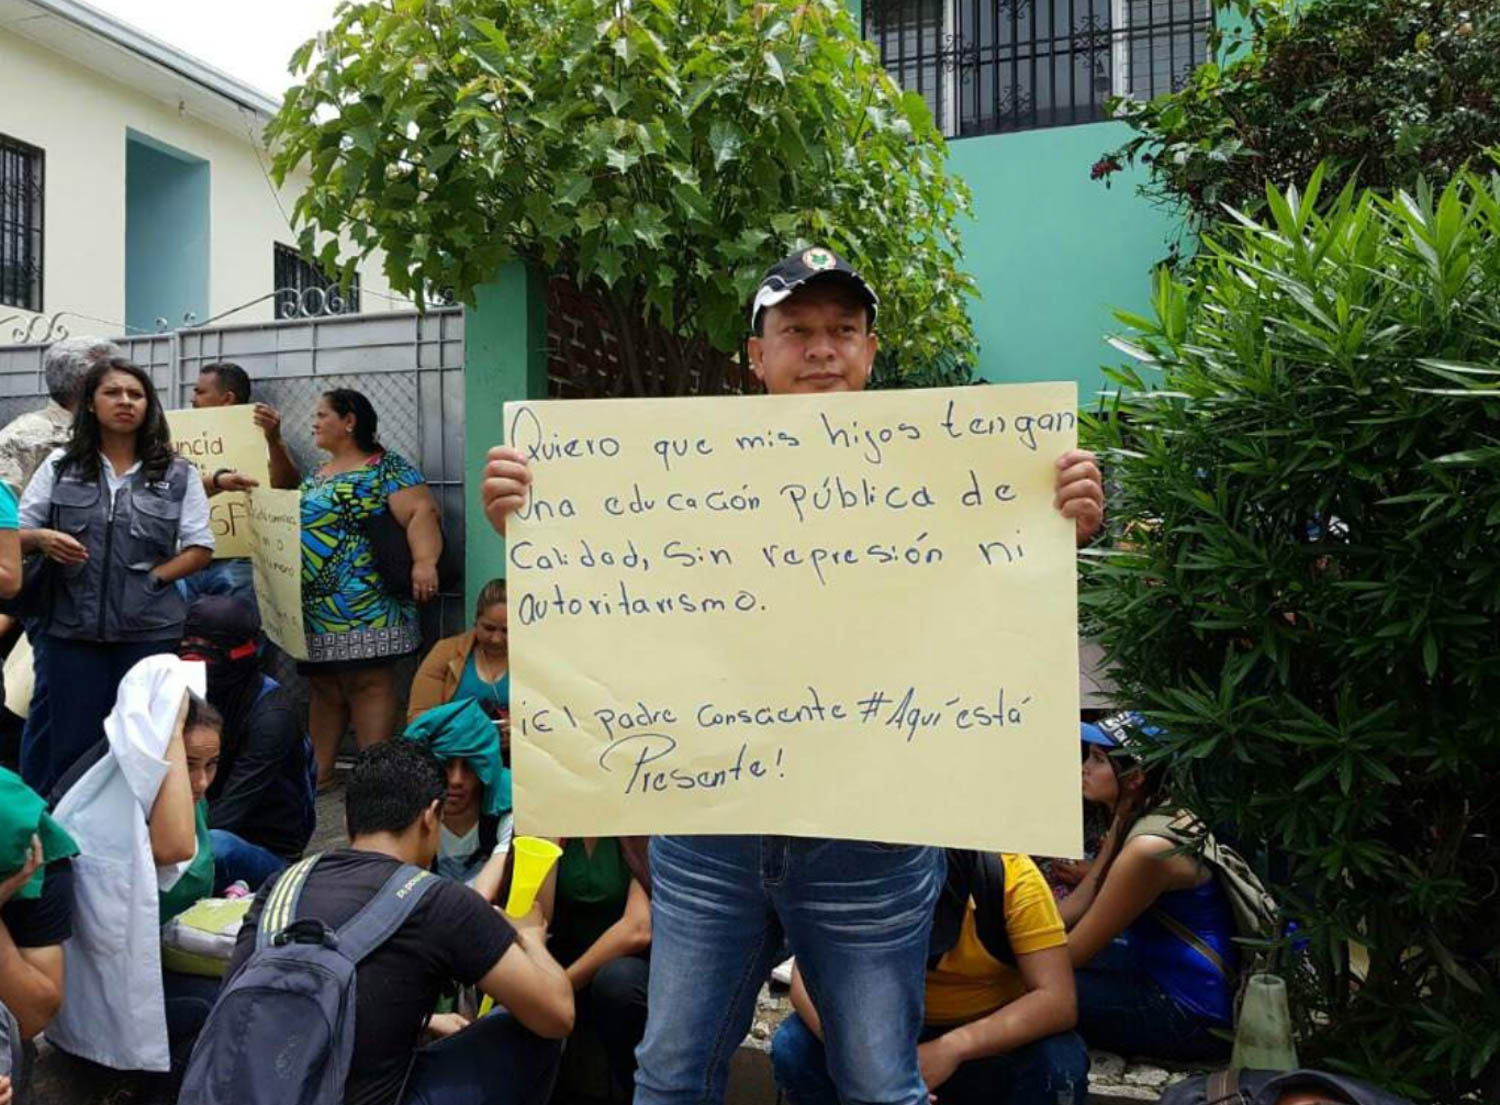 Quiero que mis hijos tengan
Una educación pública de
Calidad, Sin represión ni
autoritarismo.
¡El padre Consciente #Aquí está
Presente!